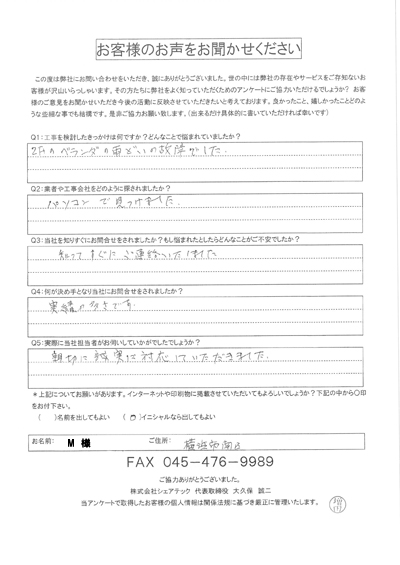 お客様のお声をお聞かせください
この度は弊社にお問い合わせをいただき、誠にありがとうございました。世の中には弊社の存在やサービスをご存知ないお
客様が沢山いらっしゃいます。その方たちに弊社をよく知っていただくためのアンケートにご協力いただけるでしょうか? お客
様のご意見をお聞かせいただき今後の活動に反映させていただきたいと考えております。良かったこと、嬉しかったことどのよう
な些細な事でも結構です。是非ご協力お願い致します。(出来るだけ具体的に書いていただければ幸いです)
Q1:工事を検討したきっかけは何ですか?どんなことで悩まれていましたか?
2Fのベランダの雨どいの故障でした。
Q2:業者や工事会社をどのように探されましたか?
パソコンで見つけました。
Q3:当社を知りすぐにお問合せをされましたか?もし悩まれたとしたらどんなことがご不安でしたか?
知ってすぐにご連絡いたしました
Q4:何が決め手となり当社にお問合せをされましたか?
実績の多さです。
Q5:実際に当社担当者がお伺いしていかがでしたでしょうか?
親切に誠実に対応していただきました。
*上記についてお願いがあります。インターネットや印刷物に掲載させていただいてもよろしいでしょうか?下記の中から○印
をお付下さい。
( )名前を出してもよい (○)イニシャルなら出してもよい
お名前: M 様 ご住所: 横浜市南区
FAX 045-476-9989
ご協力ありがとうございました。
株式会社シェアテック 代表取締役 大久保 誠二
当アンケートで取得したお客様の個人情報は関係法規に基づき厳正に管理いたします。